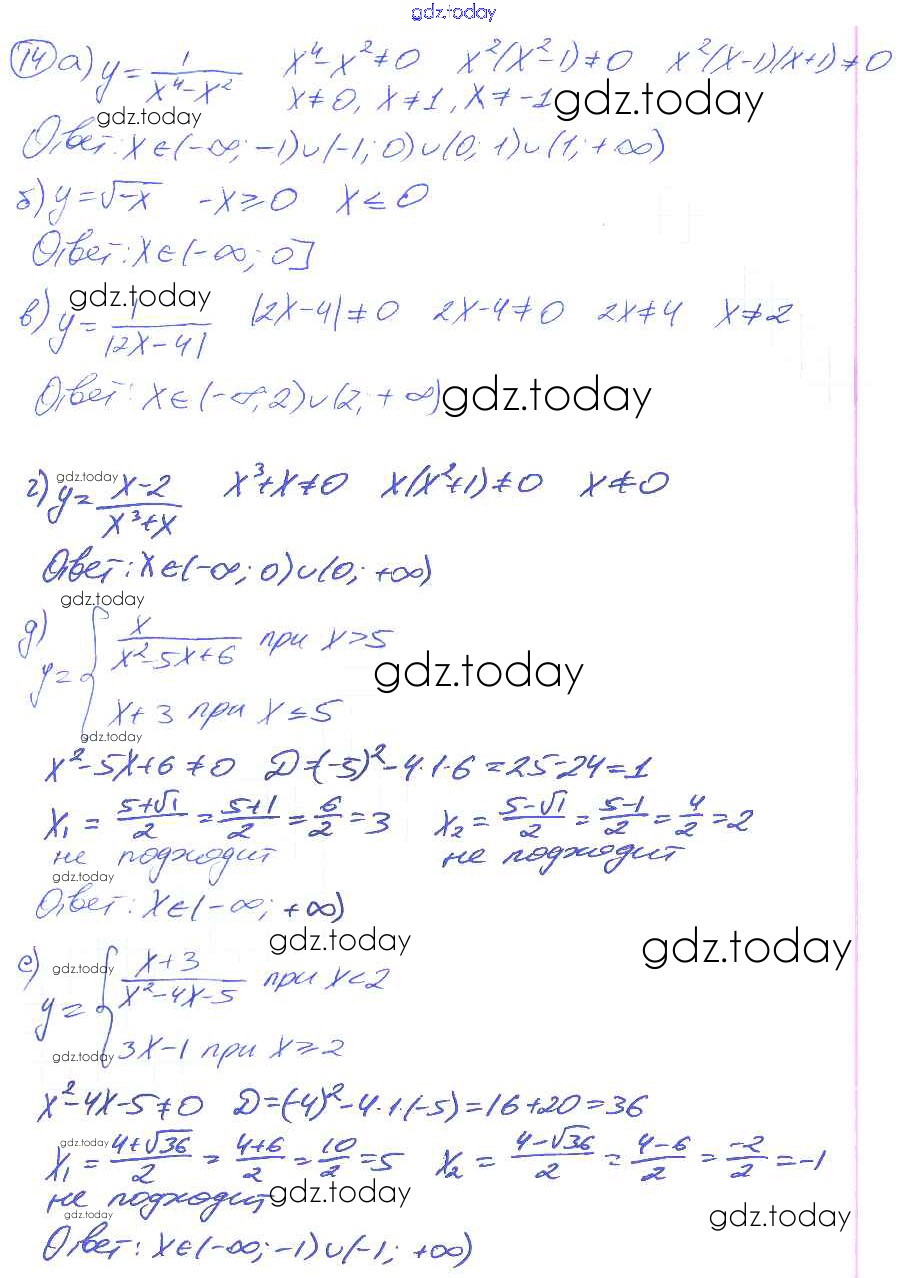 gdz.today
14 а) y = 1/(x⁴-x²)   x⁴-x²≠0   x²(x²-1)≠0   x²(x-1)(x+1)≠0
gdz.today   x≠0, x≠1, x≠-1   gdz.today
Ответ: x∈(-∞; -1)∪(-1; 0)∪(0; 1)∪(1; +∞)
б) y=√-x   -x≥0   x≤0
Ответ: x∈(-∞; 0]
gdz.today
в) y = 1/|2x-4|   |2x-4|≠0   2x-4≠0   2x≠4   x≠2
Ответ: x∈(-∞; 2)∪(2; +∞) gdz.today
gdz.today
г) y = (x-2)/(x³+x)   x³+x≠0   x(x²+1)≠0   x≠0
Ответ: x∈(-∞; 0)∪(0; +∞)
gdz.today
д) y = { x/(x²-5x+6) при x>5
gdz.today
x+3 при x≤5
gdz.today
x²-5x+6≠0   D=(-5)²-4·1·6=25-24=1
x₁ = (5+√1)/2 = (5+1)/2 = 6/2 = 3   x₂ = (5-√1)/2 = (5-1)/2 = 4/2 = 2
не подходит   не подходит
gdz.today
Ответ: x∈(-∞; +∞)
gdz.today   gdz.today
е) gdz.today y = { (x+3)/(x²-4x-5) при x<2
gdz.today 3x-1 при x≥2
x²-4x-5≠0   D=(-4)²-4·1·(-5)=16+20=36
gdz.today
x₁ = (4+√36)/2 = (4+6)/2 = 10/2 = 5   x₂ = (4-√36)/2 = (4-6)/2 = -2/2 = -1
не подходит gdz.today
gdz.today   gdz.today
Ответ: x∈(-∞; -1)∪(-1; +∞)